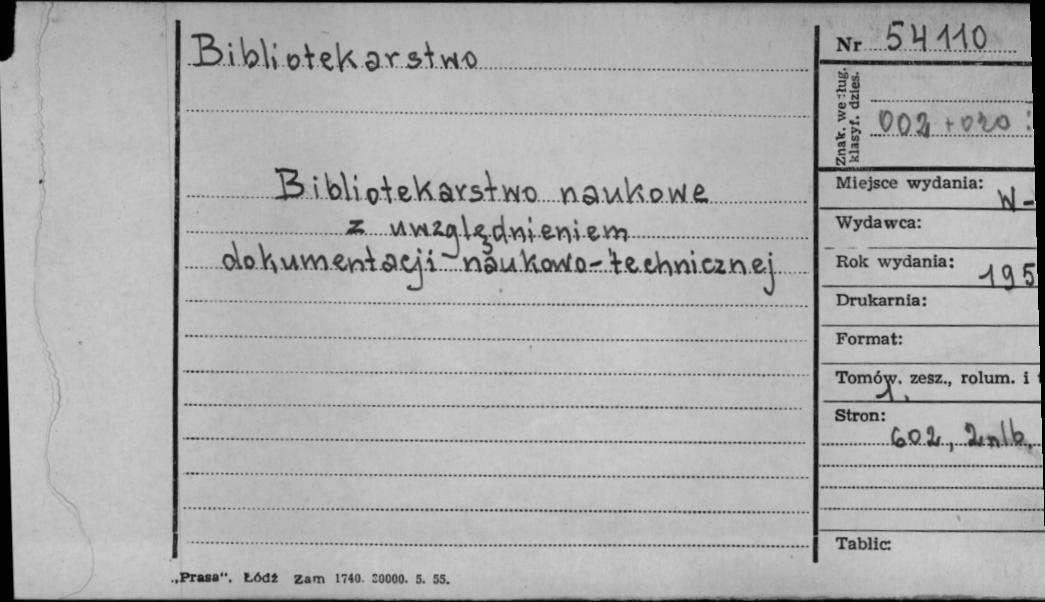 Bibliotekarstwo
Bibliotekarstwo naukowe
z uwzględnieniem
dokumentacji naukowo-technicznej
Nr 54110
Znak. według.
klasyf. dzies.
002 + 020 :
Miejsce wydania:
W-
Wydawca:
Rok wydania:
195
Drukarnia:
Format:
Tomów. zesz., rolum. i
1.
Stron:
602, 2nlb.
Tablic:
„Prasa”. Łódź Zam 1740. 30000. 5. 55.